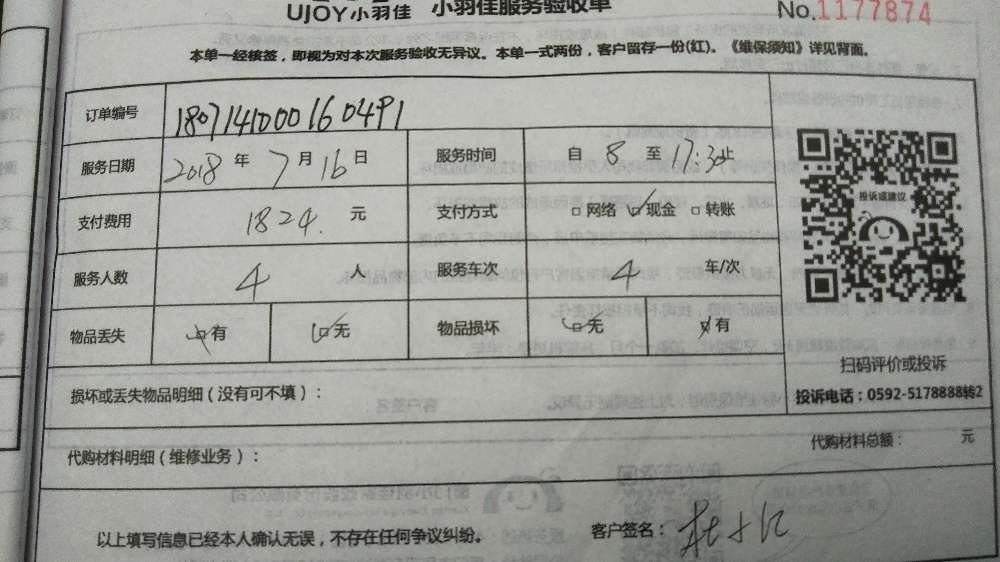 UJOY小羽佳 小羽佳服务验收单 No.1177874
本单一经核签，即视为对本次服务验收无异议。本单一式两份，客户留存一份(红)。《维保须知》详见背面。
订单编号 1807141000160491
服务日期 2018 年 7 月 16 日 服务时间 自 8 至 17:30止
支付费用 1824. 元 支付方式 □网络 ☑现金 □转账
投诉或建议
服务人数 4 人 服务车次 4 车/次
物品丢失 □有 ☑无 物品损坏 ☑无 □有
扫码评价或投诉
损坏或丢失物品明细（没有可不填）：
投诉电话：0592-5178888转2
代购材料总额： 元
代购材料明细（维修业务）：
以上填写信息已经本人确认无误，不存在任何争议纠纷。 客户签名：